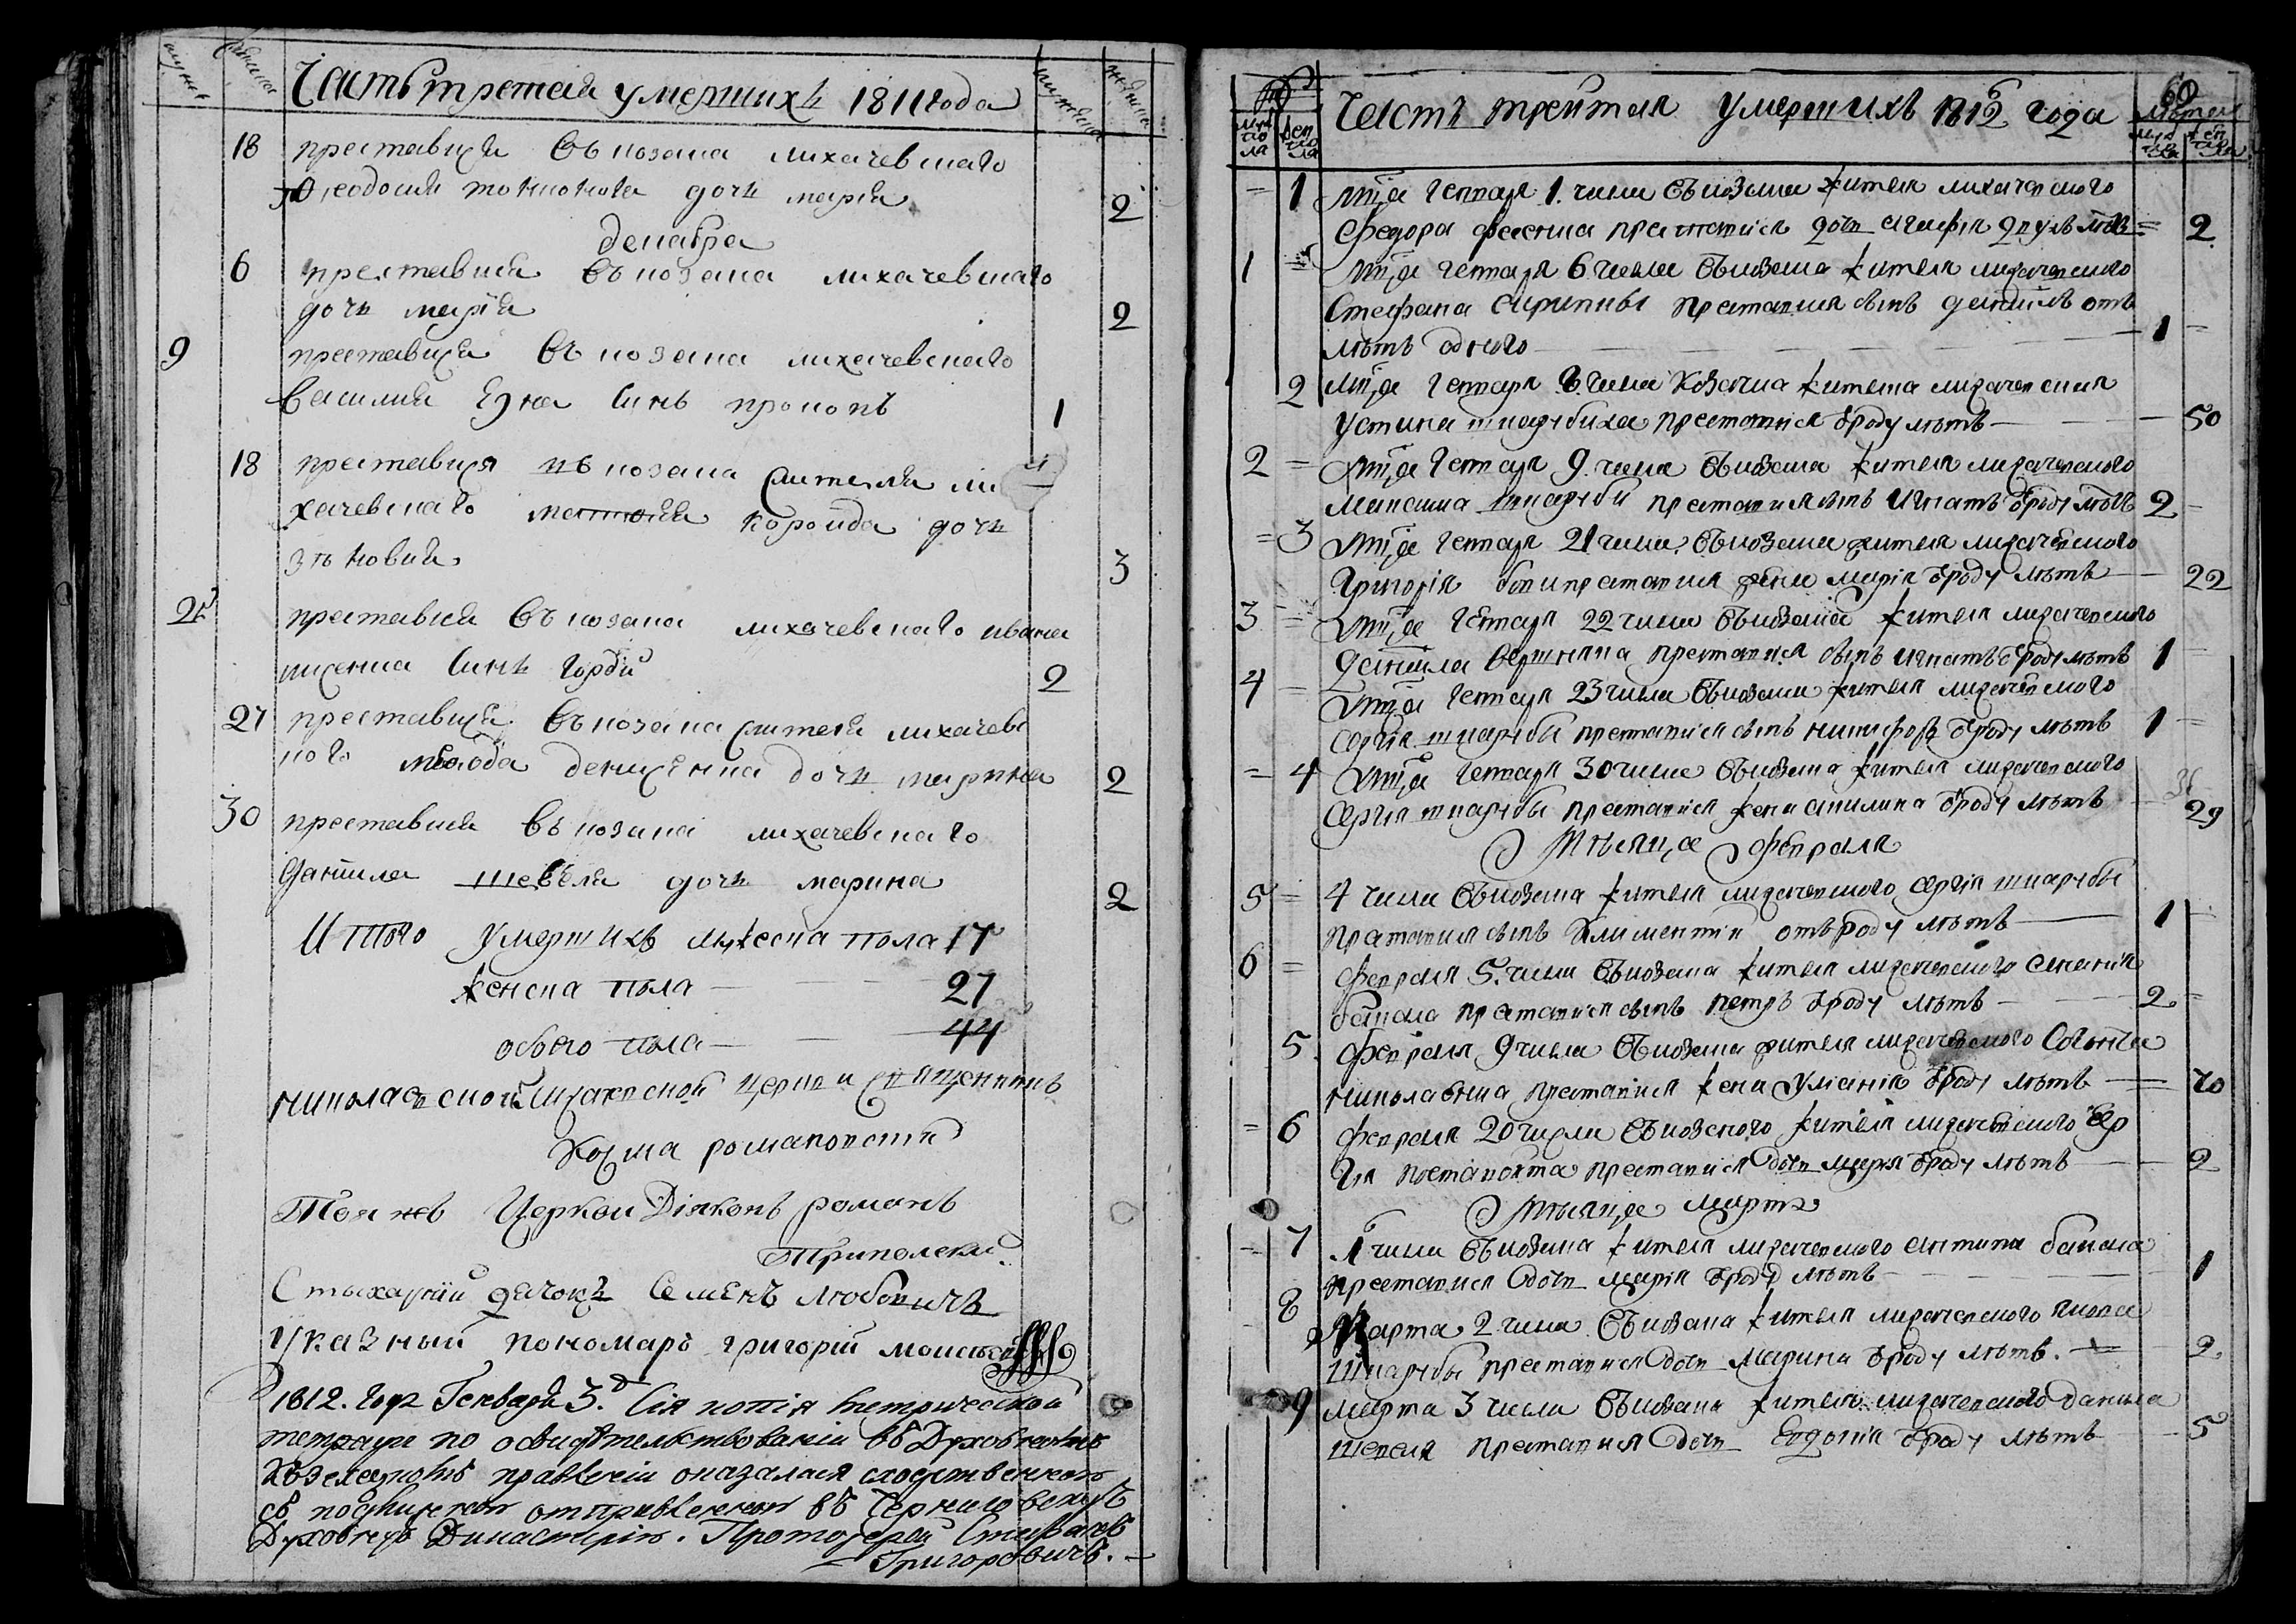 Часть третая умершихъ 1811 года
18 преставися въ козака лихачевскаго
Феодосия дочь мария 2
декабра
6 преставися въ козака лихачевскаго
дочь мария 2
9 преставися въ козака лихачевскаго
василия синъ прокопъ 1
18 преставися въ козака жителя ли
хачевскаго дочь
зѣновия 3
преставися въ козака лихачевскаго ивана
синъ гордій 2
27 преставися въ козака жителя лихачевс
кого денисенка дочь марина 2
30 преставися въ козака лихачевскаго
данііла шевеля дочь марина 2
Итого умершихъ мужеска пола 17
женска пола 27
обоего пола 44
николаевской лихачевской церкви священникъ
Козма романовскій
Тоя жъ Церкви Діяконъ романъ
Триполскій
Стихарній дячокъ Семенъ любовичъ
Указный пономарь григорій
1812. года Генваря 3. Сія копія метрической
тетради по освидѣтельствованіи въ Духовномъ
Козелецкомъ правленіи оказалася сходственною
съ подлинною отправленною въ Черниговскую
Духовную Дикастерію. Протоіерей Стефанъ
Григоровичъ.
60
Часть трейтая умершихъ 1812 года
лѣта
муж пола жен пола
1 мца генваря 1. числа въ козака жителя лихачевского
Федора преставися дочь агафія 2
1 мца генваря 6 числа въ козака жителя лихачевского
Стефана скрипки преставися сынъ даніилъ отъ
лѣтъ одного 1
2 мца генваря 8 числа козачка жителка лихачевская
устина шкарубиха преставися ѿ роду лѣтъ 50
2 мца генваря 9. числа въ козака жителя лихачевского
максима шкарубы преставися сынъ игнатъ ѿ роду лѣтъ 2
3 мца генваря 21 числа въ козака жителя лихачевского
григорія преставися жена марія ѿ роду лѣтъ 22
3 мца генваря 22 числа въ козака жителя лихачевского
даніила преставися сынъ игнатъ ѿ роду лѣтъ 1
4 мца генваря 23 числа въ козака жителя лихачевского
сергія шкарубы преставися сынъ никифоръ ѿ роду лѣтъ 1
4 мца генваря 30 числа въ козака жителя лихачевского
сергія шкарубы преставися жена акилина ѿ роду лѣтъ 29
Мѣсяца февраля
5 4 числа въ козака жителя лихачевского сергія шкарубы
преставися сынъ климентій отъ роду лѣтъ 1
6 февраля 5. числа въ козака жителя лихачевского
бакала преставися сынъ петръ ѿ роду лѣтъ 2
5 февраля 9 числа въ козака жителя лихачевского
николаенка преставися жена уліянія ѿ роду лѣтъ 70
6 февраля 20 числа въ козака жителя лихачевского сер
гія преставися дочь марія ѿ роду лѣтъ 2
Мѣсяца марта
7 1 числа въ козака жителя лихачевского антипа бакала
преставися дочь марія ѿ роду лѣтъ 1
8 Марта 2 числа въ козака жителя лихачевского якова
шкарубы преставися дочь марина ѿ роду лѣтъ. 2
9 марта 3 числа въ козака жителя лихачевского данила
шевеля преставися дочь евдокія ѿ роду лѣтъ 5